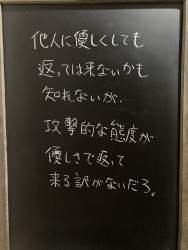 他人に優しくしても
返っては来ないかも
知れないが、
攻撃的な態度が
優しさで返って
来る訳がないだろ。